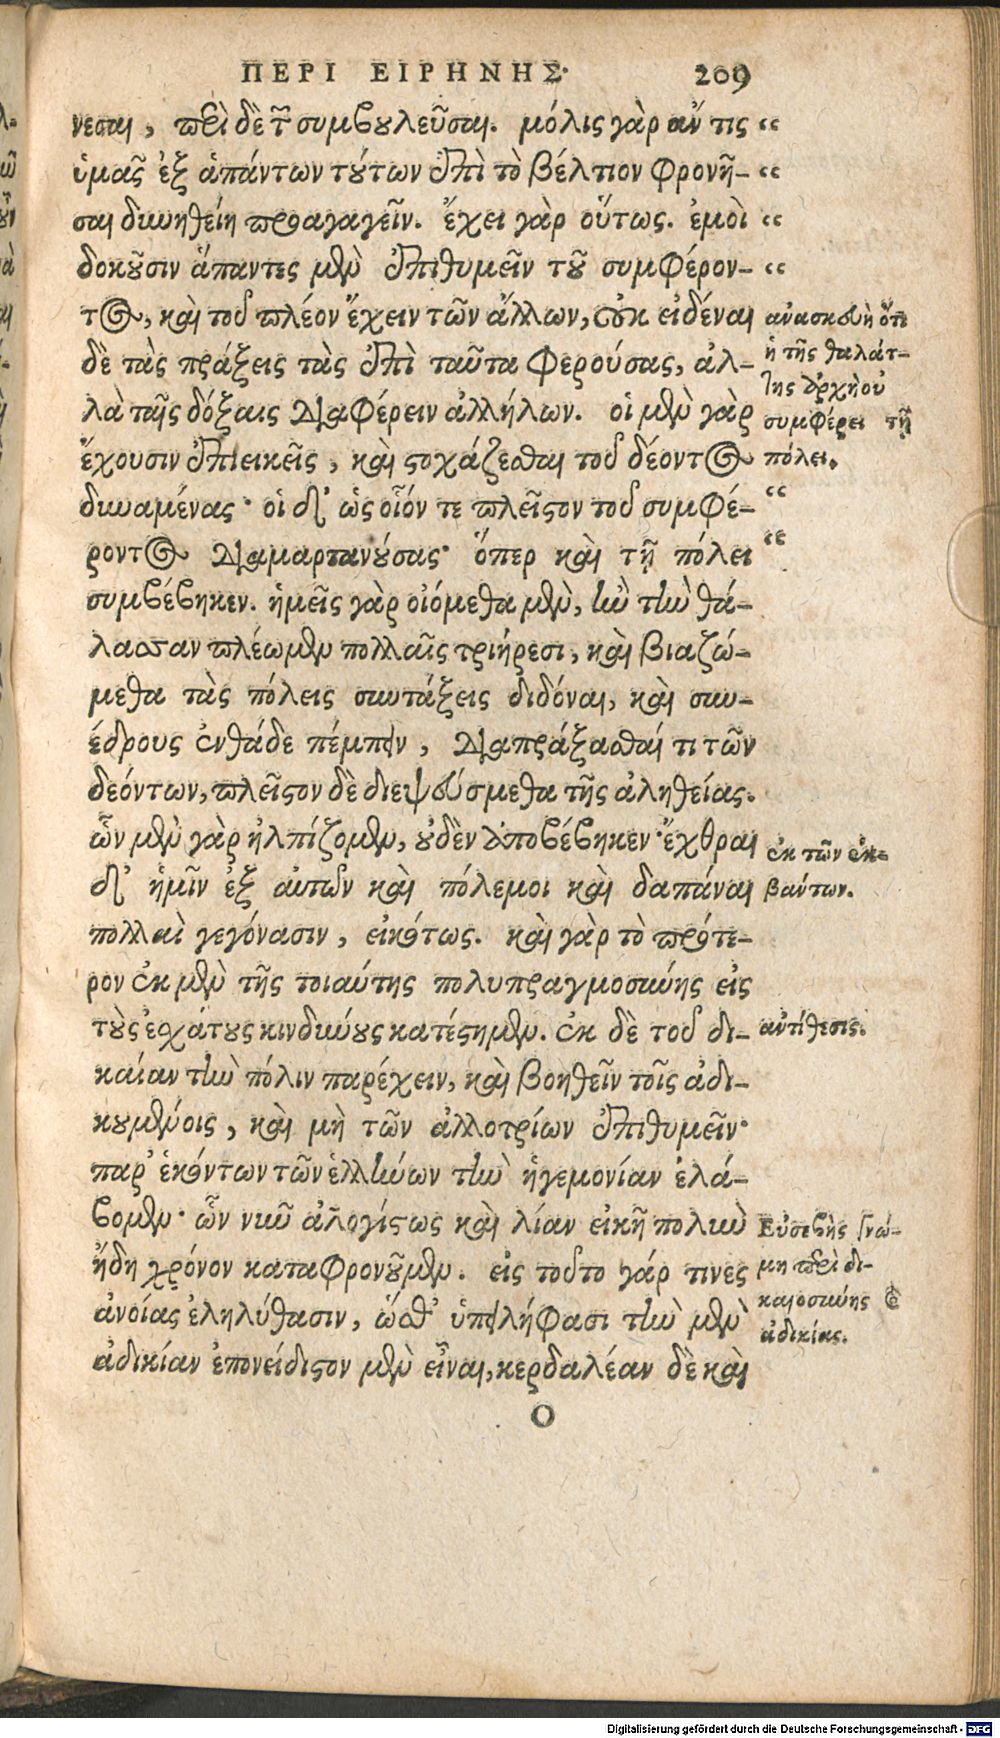 ΠΕΡΙ ΕΙΡΗΝΗΣ· 209
νεσαι, περὶ δὲ τ συμβουλεῦσαι. μόλις γὰρ ἄν τις “
ὑμᾶς ἐξ ἁπάντων τούτων ἐπὶ τὸ βέλτιον φρονῆ- “
σαι δυνηθείη προαγαγεῖν. ἔχει γὰρ οὕτως. ἐμοὶ “
δοκοῦσιν ἅπαντες μὲν ἐπιθυμεῖν τοῦ συμφέρον- “
τος, καὶ τοῦ πλέον ἔχειν τῶν ἄλλων, οὐκ εἰδέναι
δὲ τὰς πράξεις τὰς ἐπὶ ταῦτα φερούσας, ἀλ-
λὰ ταῖς δόξαις διαφέρειν ἀλλήλων. οἱ μὲν γὰρ
ἔχουσιν ἐπιεικεῖς, καὶ στοχάζεσθαι τοῦ δέοντος
δυναμένας· οἱ δ’ ὡς οἷόν τε πλεῖστον τοῦ συμφέ- “
ροντος διαμαρτανούσας· ὅπερ καὶ τῇ πόλει “
συμβέβηκεν. ἡμεῖς γὰρ οἰόμεθα μὲν, ἢν τὴν θά-
λασσαν πλέωμεν πολλαῖς τριήρεσι, καὶ βιαζώ-
μεθα τὰς πόλεις συντάξεις διδόναι, καὶ συν-
έδρους ἐνθάδε πέμπειν, διαπράξασθαί τι τῶν
δεόντων, πλεῖστον δὲ διεψεύσμεθα τῆς ἀληθείας.
ὧν μὲν γὰρ ἠλπίζομεν, οὐδὲν ἀποβέβηκεν· ἔχθραι
δ’ ἡμῖν ἐξ αὐτῶν καὶ πόλεμοι καὶ δαπάναι
πολλαὶ γεγόνασιν, εἰκότως. καὶ γὰρ τὸ πρότε-
ρον ἐκ μὲν τῆς τοιαύτης πολυπραγμοσύνης εἰς
τοὺς ἐσχάτους κινδύνους κατέστημεν. ἐκ δὲ τοῦ δι-
καίαν τὴν πόλιν παρέχειν, καὶ βοηθεῖν τοῖς ἀδι-
κουμένοις, καὶ μὴ τῶν ἀλλοτρίων ἐπιθυμεῖν·
παρ’ ἑκόντων τῶν ἑλλήνων τὴν ἡγεμονίαν ἐλά-
βομεν· ὧν νῦν ἀλογίστως καὶ λίαν εἰκῇ πολὺν
ἤδη χρόνον καταφρονοῦμεν. εἰς τοῦτο γάρ τινες
ἀνοίας ἐληλύθασιν, ὥσθ’ ὑπειλήφασι τὴν μὲν
ἀδικίαν ἐπονείδιστον μὲν εἶναι, κερδαλέαν δὲ καὶ
O
ἀνασκευὴ ὅτι
ἡ τῆς θαλάτ-
της ἀρχὴ οὐ
συμφέρει τῇ
πόλει.
ἐκ τῶν ἐκ-
βάντων.
ἀντίθεσις.
Εὐσεβὴς γνώ-
μη περὶ δι-
καιοσύνης καὶ
ἀδικίας.
Digitalisierung gefördert durch die Deutsche Forschungsgemeinschaft - DFG